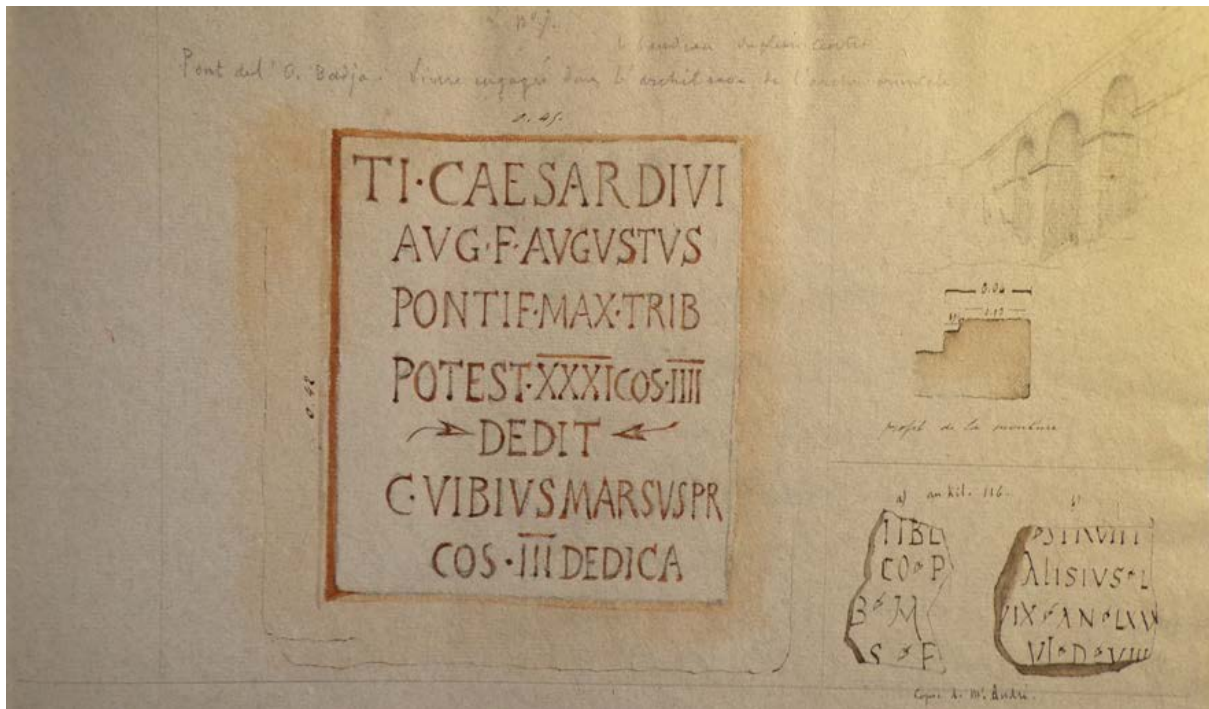 N° 7.
Pont de l'O. Badja. Pierre engagée dans l'architrave de l'arche orientale
0.45.
TI·CAESAR DIVI
AVG·F·AVGVSTVS
PONTIF·MAX·TRIB
POTEST·XXXI COS·IIII
DEDIT
C·VIBIVS MARSVS PR
COS·III DEDICA
0.48
0.04
0.17
profil de la moulure
a) au kil. 116.
ITBL
CO P
B M
S F
b)
ALISIVS L
VIX AN LXV
VI D VIII
Copie de Mr. André.